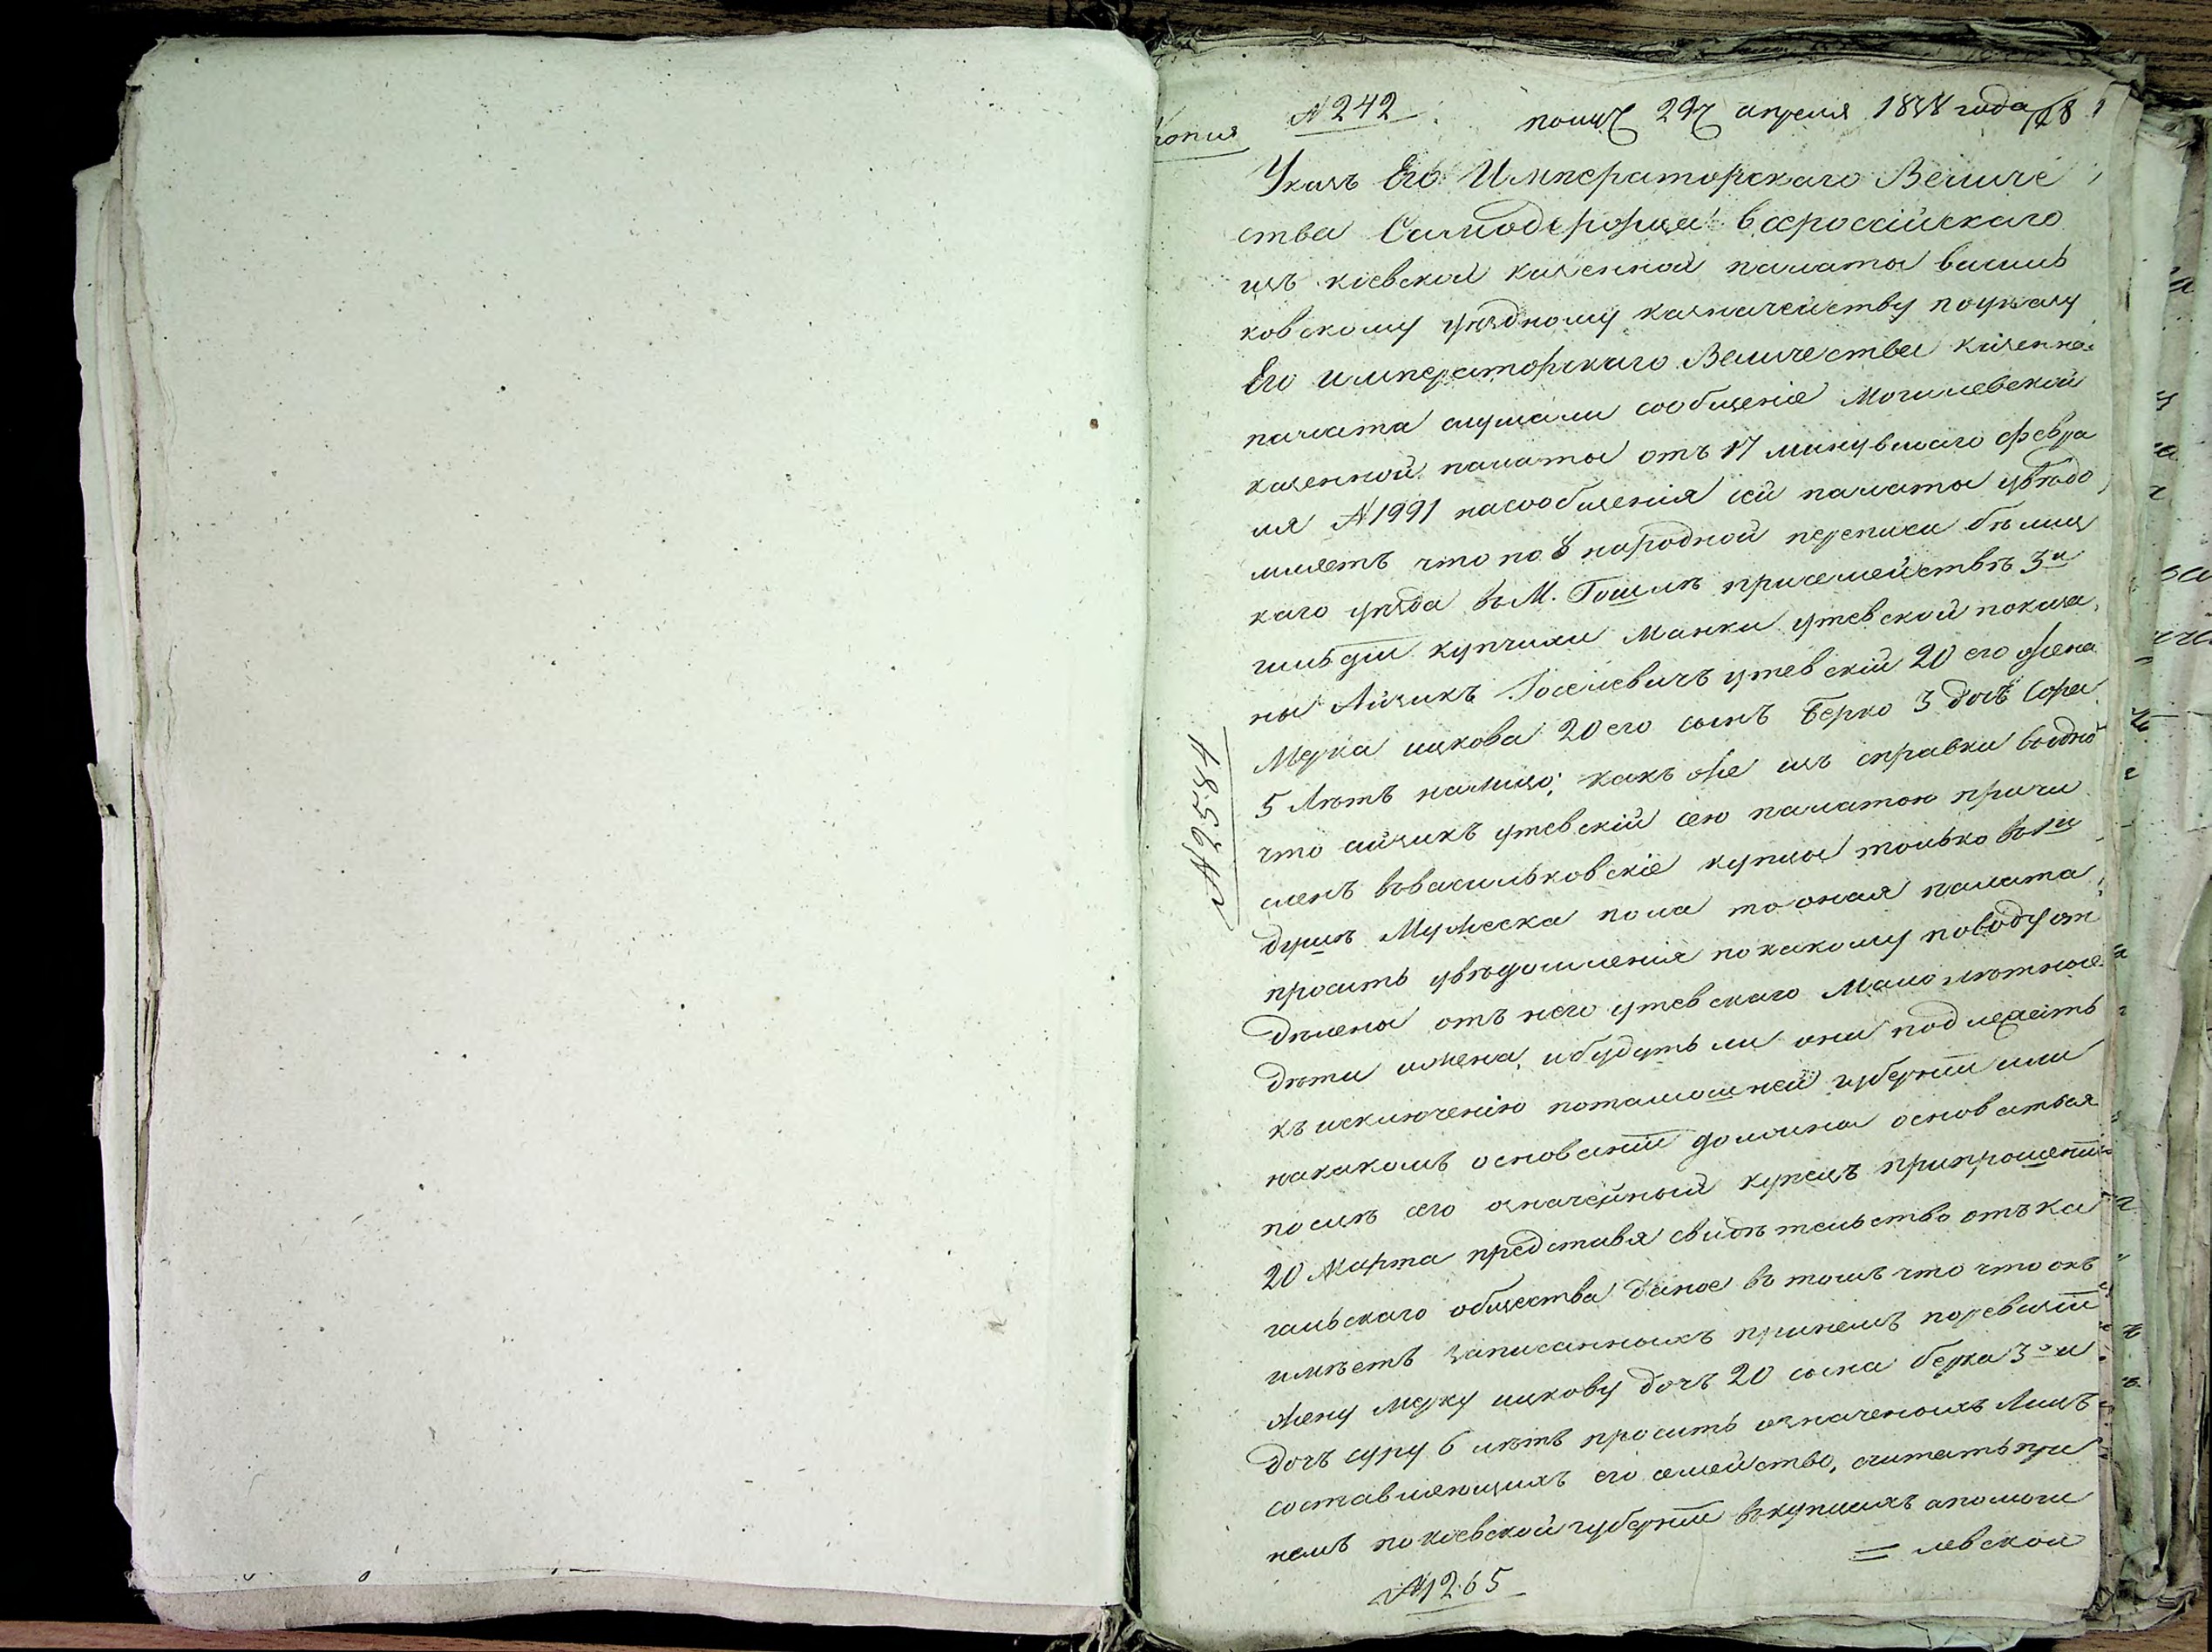 Копия
№ 242
получ. 29 апреля 1838 года
Указъ Его Императорскаго Величе
ства Самодержца Всероссійскаго
изъ кіевской казенной палаты василь
ковскому уѣздному казначейству по указу
Его императорскаго Величества казенная
палата слушали сообщеніе Могилевской
казенной палаты отъ 17 минувшаго февра
ля №1991 на сообщенія сей палаты увѣдо
мляетъ что по 8 народной переписи бѣлиц
каго уѣзда въ М. Гомлѣ при семействѣ 3й
гильдіи купчихи Манки утевской показа
ны Айзикъ Іосіевичъ утевскій 20 его жена
Мерка ицкова 20 его сынъ Берко 3 дочь Сора
5 лѣтъ на лицо; какъ же изъ справки видно
что айзикъ утевскій сею палатою причи
сленъ въ васильковскіе купцы только въ 1й
душѣ Мужеска пола то оная палата
проситъ увѣдомленія по какому поводу от
дѣлены отъ него утевскаго Малолѣтные
дѣти и жена, и будутъ ли они подлежать
къ исключенію по тамошней губерніи или
на какомъ основаніи должны основаться
послѣ сего означенный купецъ при прошеніи
20 Марта представя свидѣтельство отъ ка
гальскаго общества даное въ томъ что что онъ
имѣетъ записанныхъ при немъ по ревизіи
жену мерку ицкову дочь 20 сына берка 3х и
дочь суру 6 лѣтъ проситъ означеныхъ Лицъ
составляющихъ его семейство, считать при
немъ по кіевской губерніи въ купцахъ а по моги
= левской
№ 1265
№ 9584